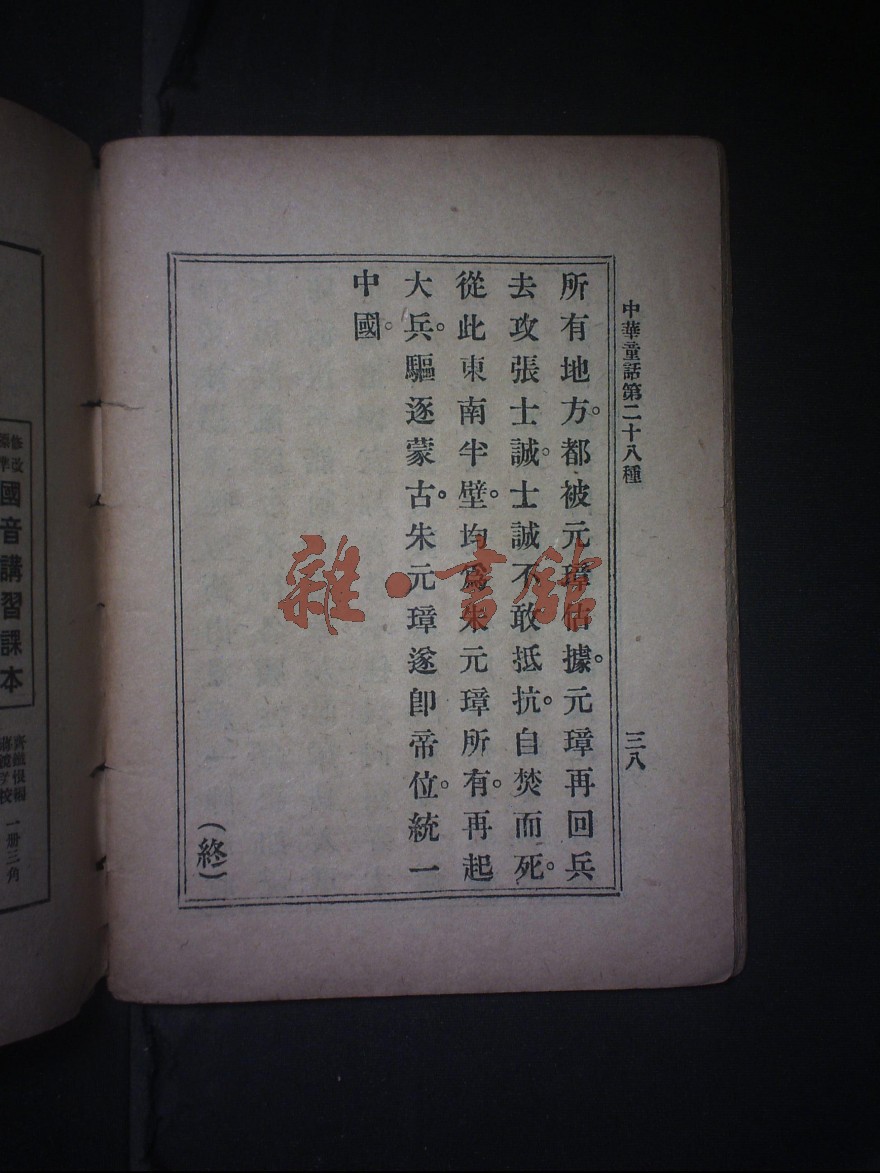 中華童話第二十八種
三八
所有地方。都被元璋佔據。元璋再回兵
去攻張士誠。士誠不敢抵抗。自焚而死。
從此東南半壁。均爲朱元璋所有。再起
大兵。驅逐蒙古。朱元璋遂卽帝位。統一
中國。
(終)
雜·書館
修改
國音講習課本
一册三角